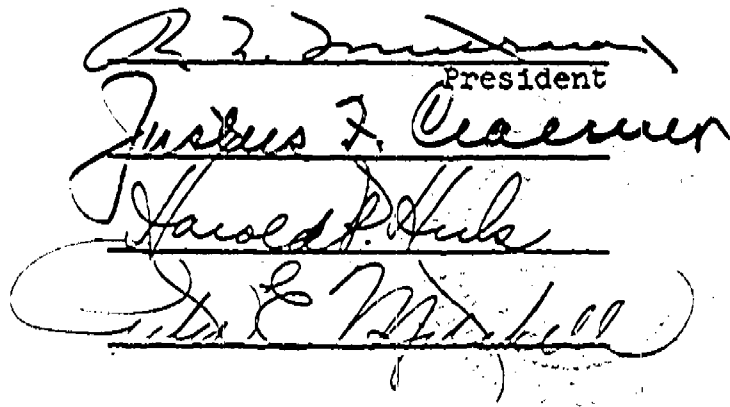 President
Justus F. Craemer
Harold P. Huls
Peter E. Mitchell